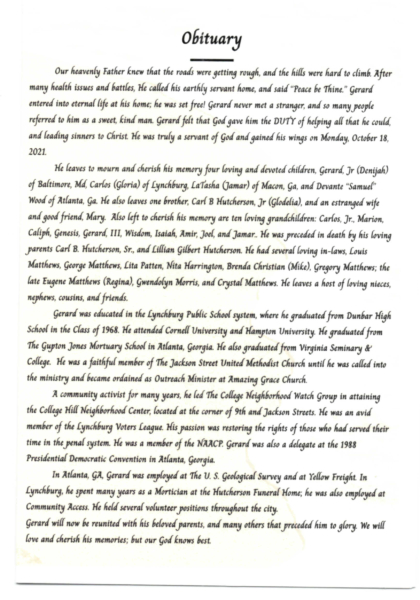 Obituary
Our heavenly Father knew that the roads were getting rough, and the hills were hard to climb. After
many health issues and battles, He called his earthly servant home, and said "Peace be Thine." Gerard
entered into eternal life at his home; he was set free! Gerard never met a stranger, and so many people
referred to him as a sweet, kind man. Gerard felt that God gave him the DUTY of helping all that he could,
and leading sinners to Christ. He was truly a servant of God and gained his wings on Monday, October 18,
2021.
He leaves to mourn and cherish his memory four loving and devoted children, Gerard, Jr (Denijah)
of Baltimore, Md, Carlos (Gloria) of Lynchburg, LaTasha (Jamar) of Macon, Ga, and Devante "Samuel"
Wood of Atlanta, Ga. He also leaves one brother, Carl B Hutcherson, Jr (Glodelia), and an estranged wife
and good friend, Mary. Also left to cherish his memory are ten loving grandchildren: Carlos, Jr., Marion,
Caliph, Genesis, Gerard, III, Wisdom, Isaiah, Amir, Joel, and Jamar. He was preceded in death by his loving
parents Carl B. Hutcherson, Sr., and Lillian Gilbert Hutcherson. He had several loving in-laws, Louis
Matthews, George Matthews, Lita Patten, Nita Harrington, Brenda Christian (Mike), Gregory Matthews; the
late Eugene Matthews (Regina), Gwendolyn Morris, and Crystal Matthews. He leaves a host of loving nieces,
nephews, cousins, and friends.
Gerard was educated in the Lynchburg Public School system, where he graduated from Dunbar High
School in the Class of 1968. He attended Cornell University and Hampton University. He graduated from
The Gupton Jones Mortuary School in Atlanta, Georgia. He also graduated from Virginia Seminary &
College. He was a faithful member of The Jackson Street United Methodist Church until he was called into
the ministry and became ordained as Outreach Minister at Amazing Grace Church.
A community activist for many years, he led The College Neighborhood Watch Group in attaining
the College Hill Neighborhood Center, located at the corner of 9th and Jackson Streets. He was an avid
member of the Lynchburg Voters League. His passion was restoring the rights of those who had served their
time in the penal system. He was a member of the NAACP. Gerard was also a delegate at the 1988
Presidential Democratic Convention in Atlanta, Georgia.
In Atlanta, GA, Gerard was employed at The U. S. Geological Survey and at Yellow Freight. In
Lynchburg, he spent many years as a Mortician at the Hutcherson Funeral Home; he was also employed at
Community Access. He held several volunteer positions throughout the city.
Gerard will now be reunited with his beloved parents, and many others that preceded him to glory. We will
love and cherish his memories; but our God knows best.